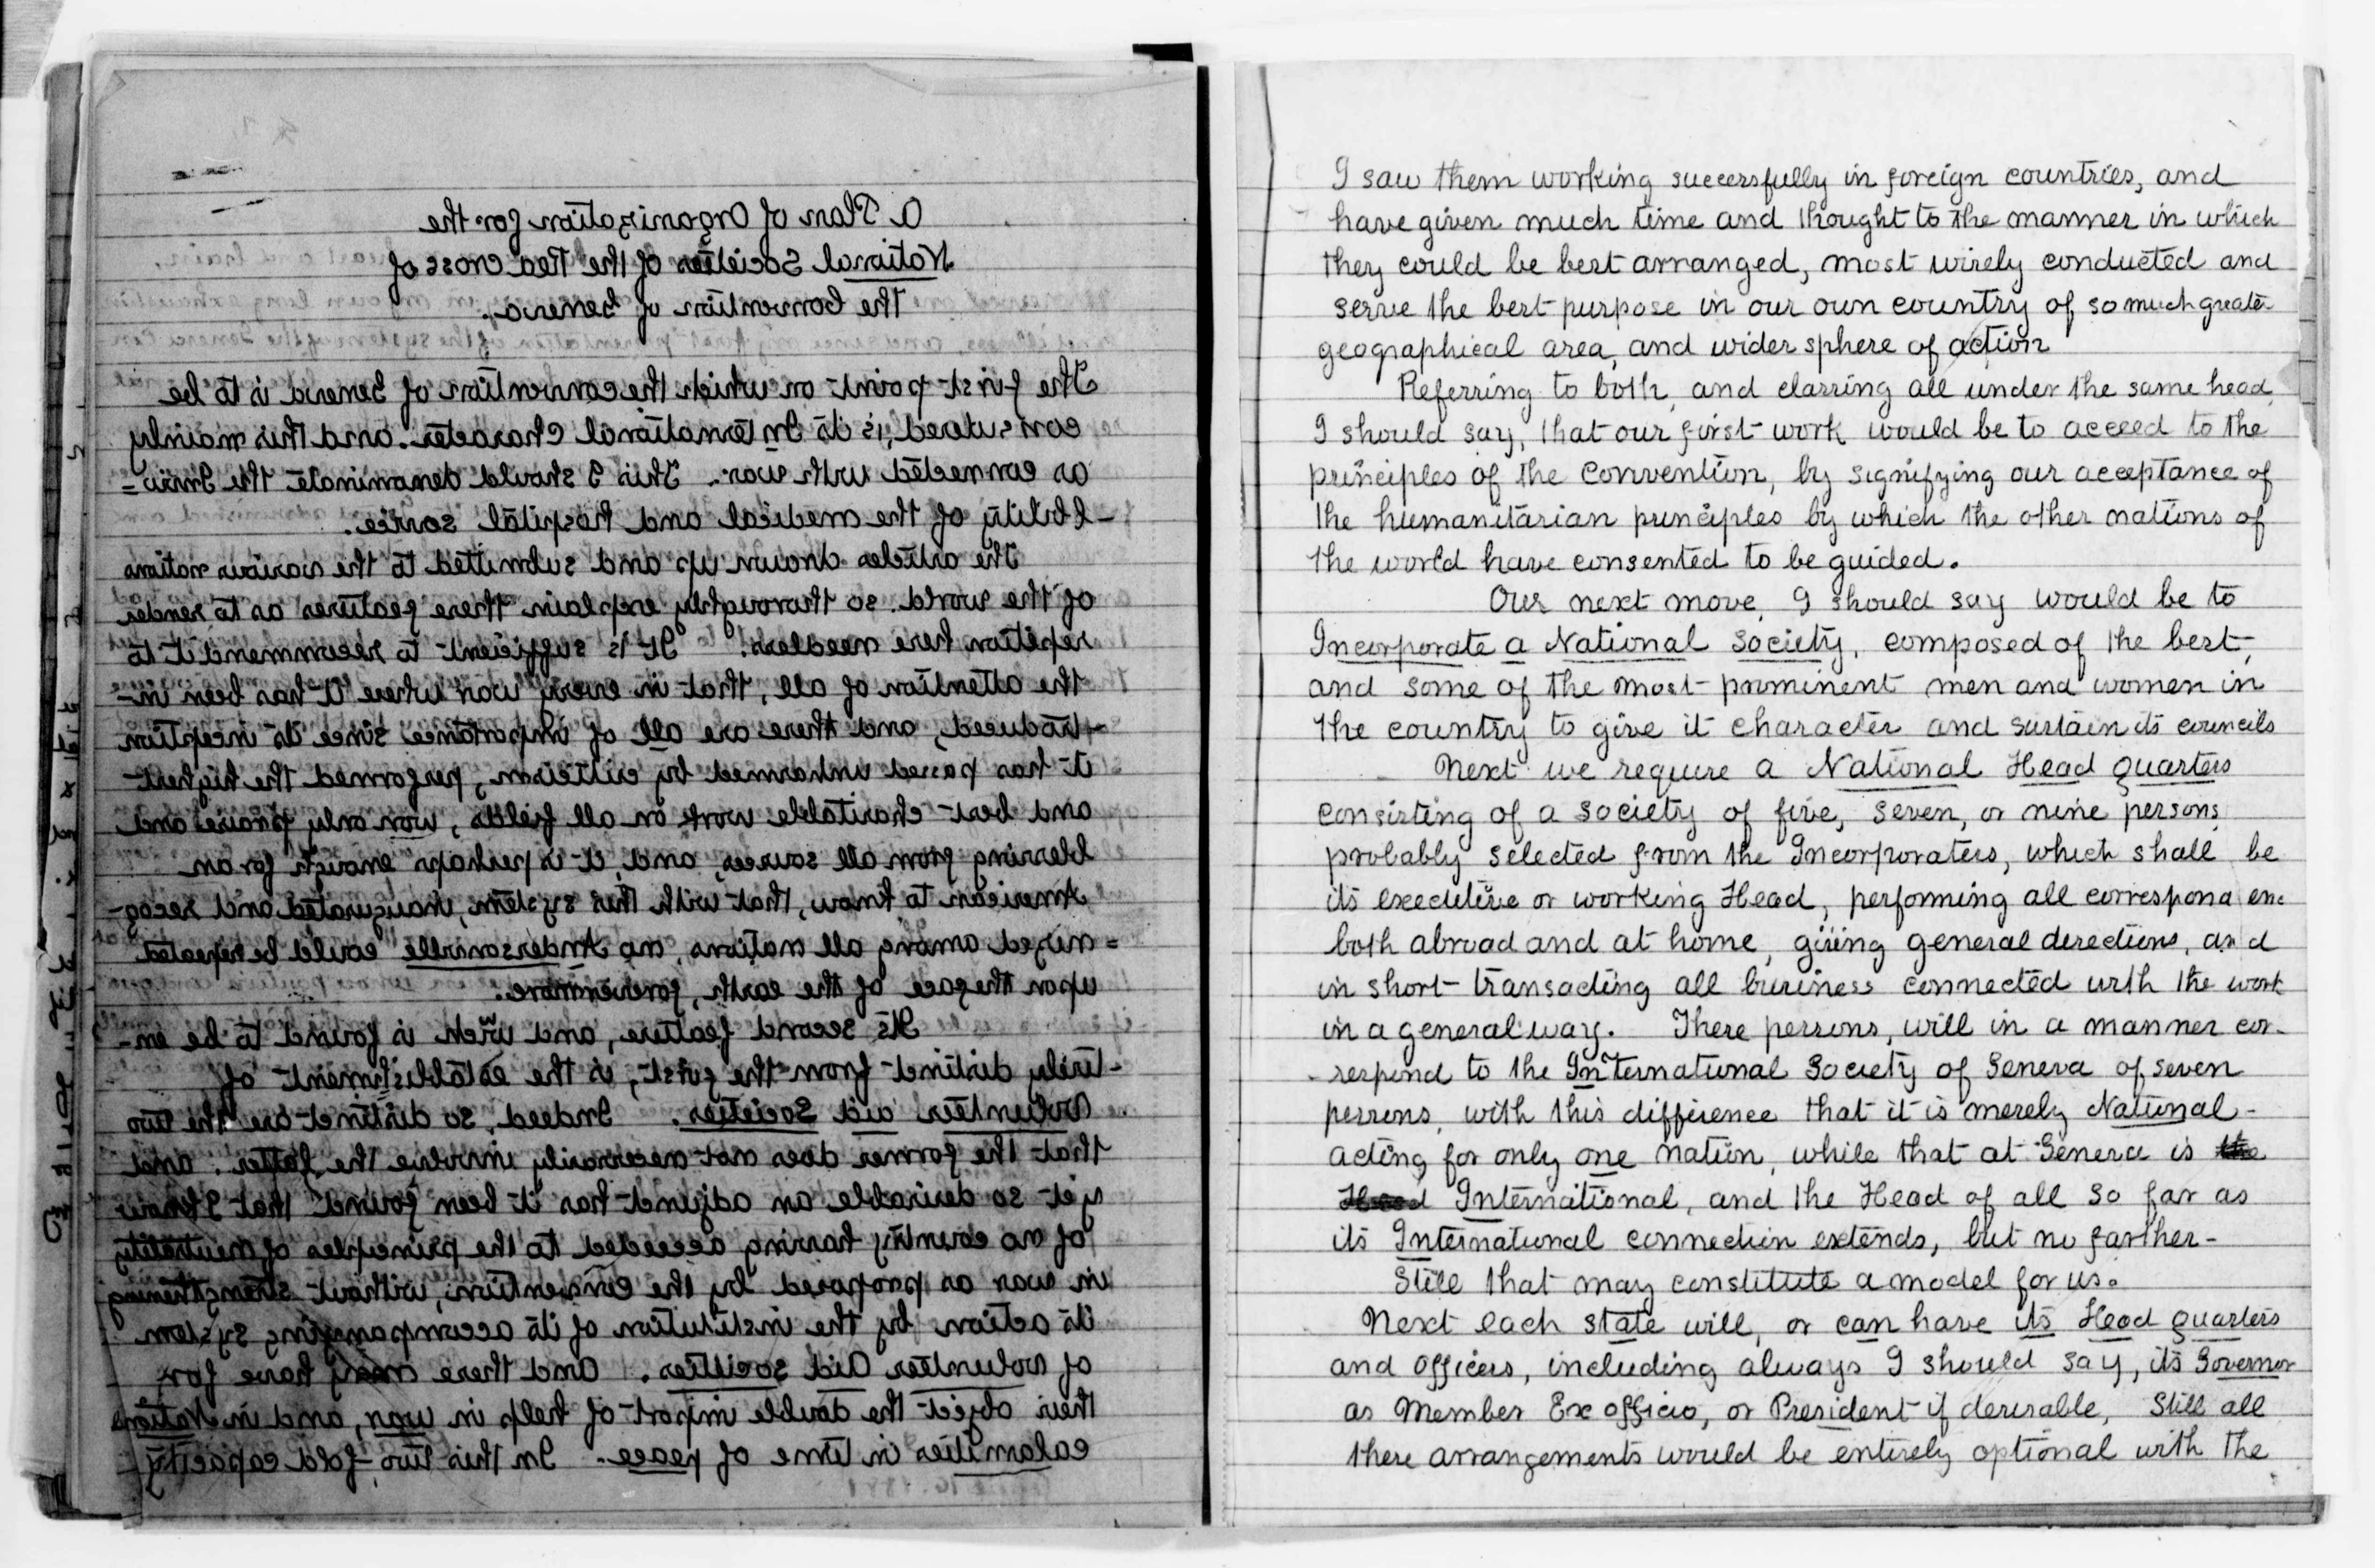 A Plan of Organization for the
National Societies of the Red Cross of
The Convention of Geneva.
The first point on which the convention of Geneva is to be
considered, is its International character. and this mainly
as connected with war. This I should denominate the Invio=
-lbility of the medical and hospital service.
The articles drawn up and submitted to the various nations
of the world. so thoroughly explain these features as to render
repetion here needless. It is sufficient to recommend it to
the attention of all, that in every war where it has been in-
-troduced, and these are all of importance since its inception
it has passed unharmed by criticism, performed the highest
and best charitable work on all fields, won only praise and
blessing from all sources, and, it is perhaps enough for an
American to know, that with this system, inaugurated and recog-
=nized among all nations, no Andersonville could be repeated
upon the face of the earth, forevermore.
Its second feature, and which is found to be en-
-tirely distinct from the first, is the establishment of
Volunteer aid Societies. Indeed, so distinct are the two
that the former does not necessarily involve the latter. and
yet so desirable an adjunct has it been found that I know
of no country having acceeded to the principles of neutrality
in war as proposed by the convention, without strengthening
its action by the institution of its accompanying system
of volunteer Aid societies. And these may have for
their object the double import of help in war, and in National
calamities in time of peace. In this two-fold capacity
I saw them working successfully in foreign countries, and
have given much time and thought to the manner in which
they could be best arranged, most wisely conducted and
serve the best purpose in our own country of so much greater
geographical area, and wider sphere of action
Referring to both, and classing all under the same head,
I should say, that our first work would be to acceed to the
principles of the Convention, by signifying our acceptance of
the humanitarian principles by which the other nations of
the world have consented to be guided.
Our next move, I should say would be to
Incorporate a National Society, composed of the best,
and some of the most prominent men and women in
the country to give it character and sustain its councils
Next we require a National Head Quarters
consisting of a society of five, seven, or nine persons,
probably selected from the Incorporaters, which shall be
its executive or working Head, performing all correspond enc
both abroad and at home, giving general directions, and
in short transacting all business connected with the work
in a general way. These persons, will in a manner cor-
-respond to the International Society of Geneva of seven
persons, with this difference that it is merely National-
acting for only one nation, while that at Geneva is the
Head International, and the Head of all so far as
its International connection extends, but no farther-
Still that may constitute a model for us.
Next each state will, or can have its Head Quarters
and officers, including always I should say, its Governor
as Member Ex officio, or President if desirable, Still all
these arrangements would be entirely optional with the